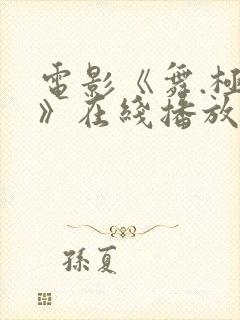 電影《舞.極
》在綫播放
孫夏